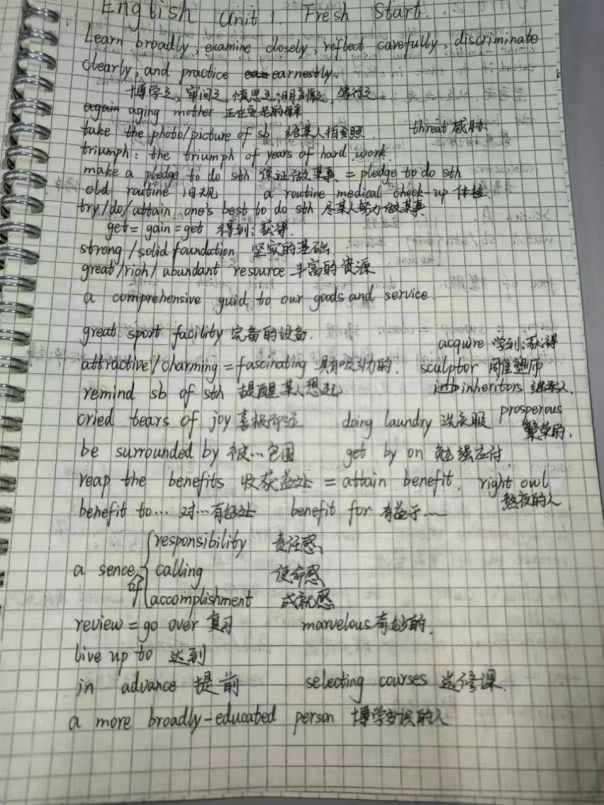 English Unit 1. Fresh Start.
Learn broadly, examine closely, reflect carefully, discriminate
clearly, and practice earnestly.
博学之, 审问之 慎思之 明辨之, 笃行之
again aging mother 正在变老的母亲
take the photo/picture of sb 给某人拍照 threat 威胁
triumph: the triumph of years of hard work.
make a pledge to do sth 保证做某事 = pledge to do sth
old routine 旧规 a routine medical check-up 体检
try/do/attain one's best to do sth 尽某人努力做某事
get = gain = get 得到; 获得
strong/solid foundation 坚实的基础
great/rich/abundant resource 丰富的资源
a comprehensive guid to our goods and service.
great sport facility 完备的设备 acquire 学到; 获得
attractive/charming = fascinating 具有吸引力的. sculptor 雕塑师
remind sb of sth 提醒某人想起 inheritors 继承人.
cried tears of joy 喜极而泣 doing laundry 洗衣服 prosperous 繁荣的.
be surrounded by 被…包围 get by on 勉强应付
reap the benefits 收获益处 = attain benefit. right owl 熬夜的人
behefit to… 对…有好处 benefit for 有益于…
a sence of
responsibility 责任感
calling 使命感
accomplishment 成就感
review = go over 复习 marvelous 奇妙的.
live up to 达到
in advance 提前 selecting courses 选修课.
a more broadly-educated person 博学多识的人